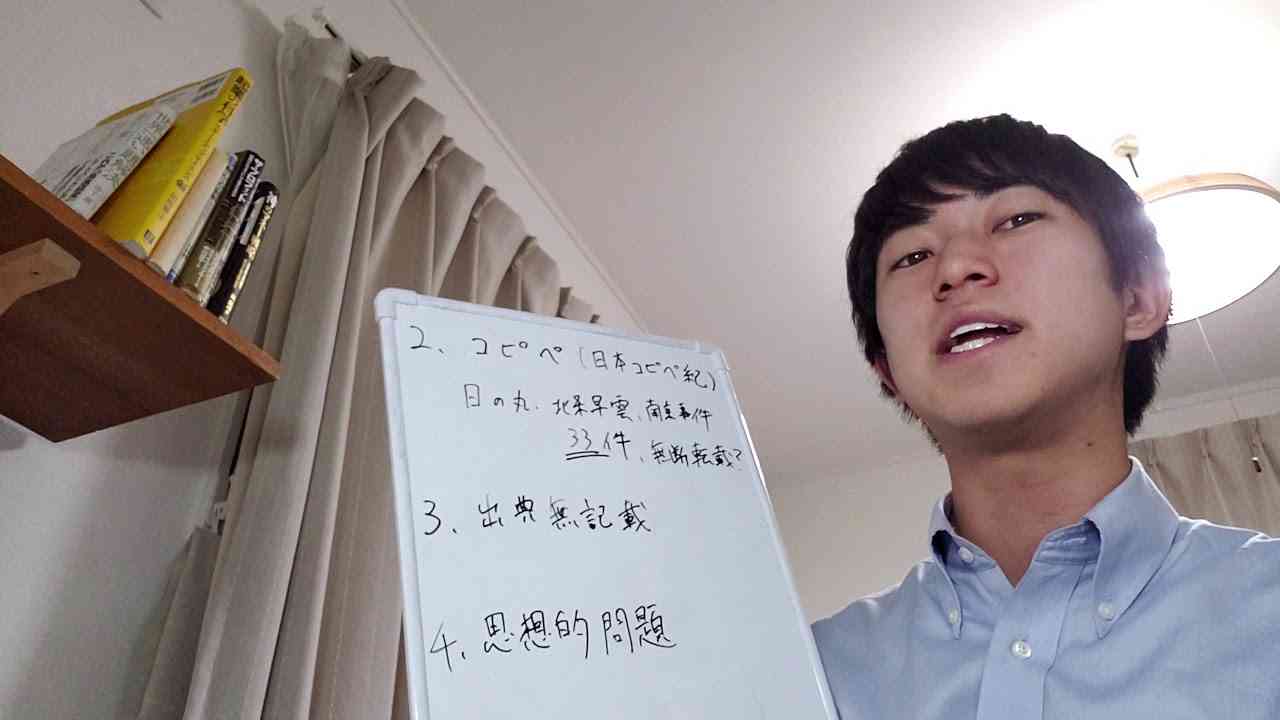 2、コピペ(日本コピペ紀)
日の丸、北条早雲、南京事件
33件、無断転載?
3、出典無記載
4、思想的問題